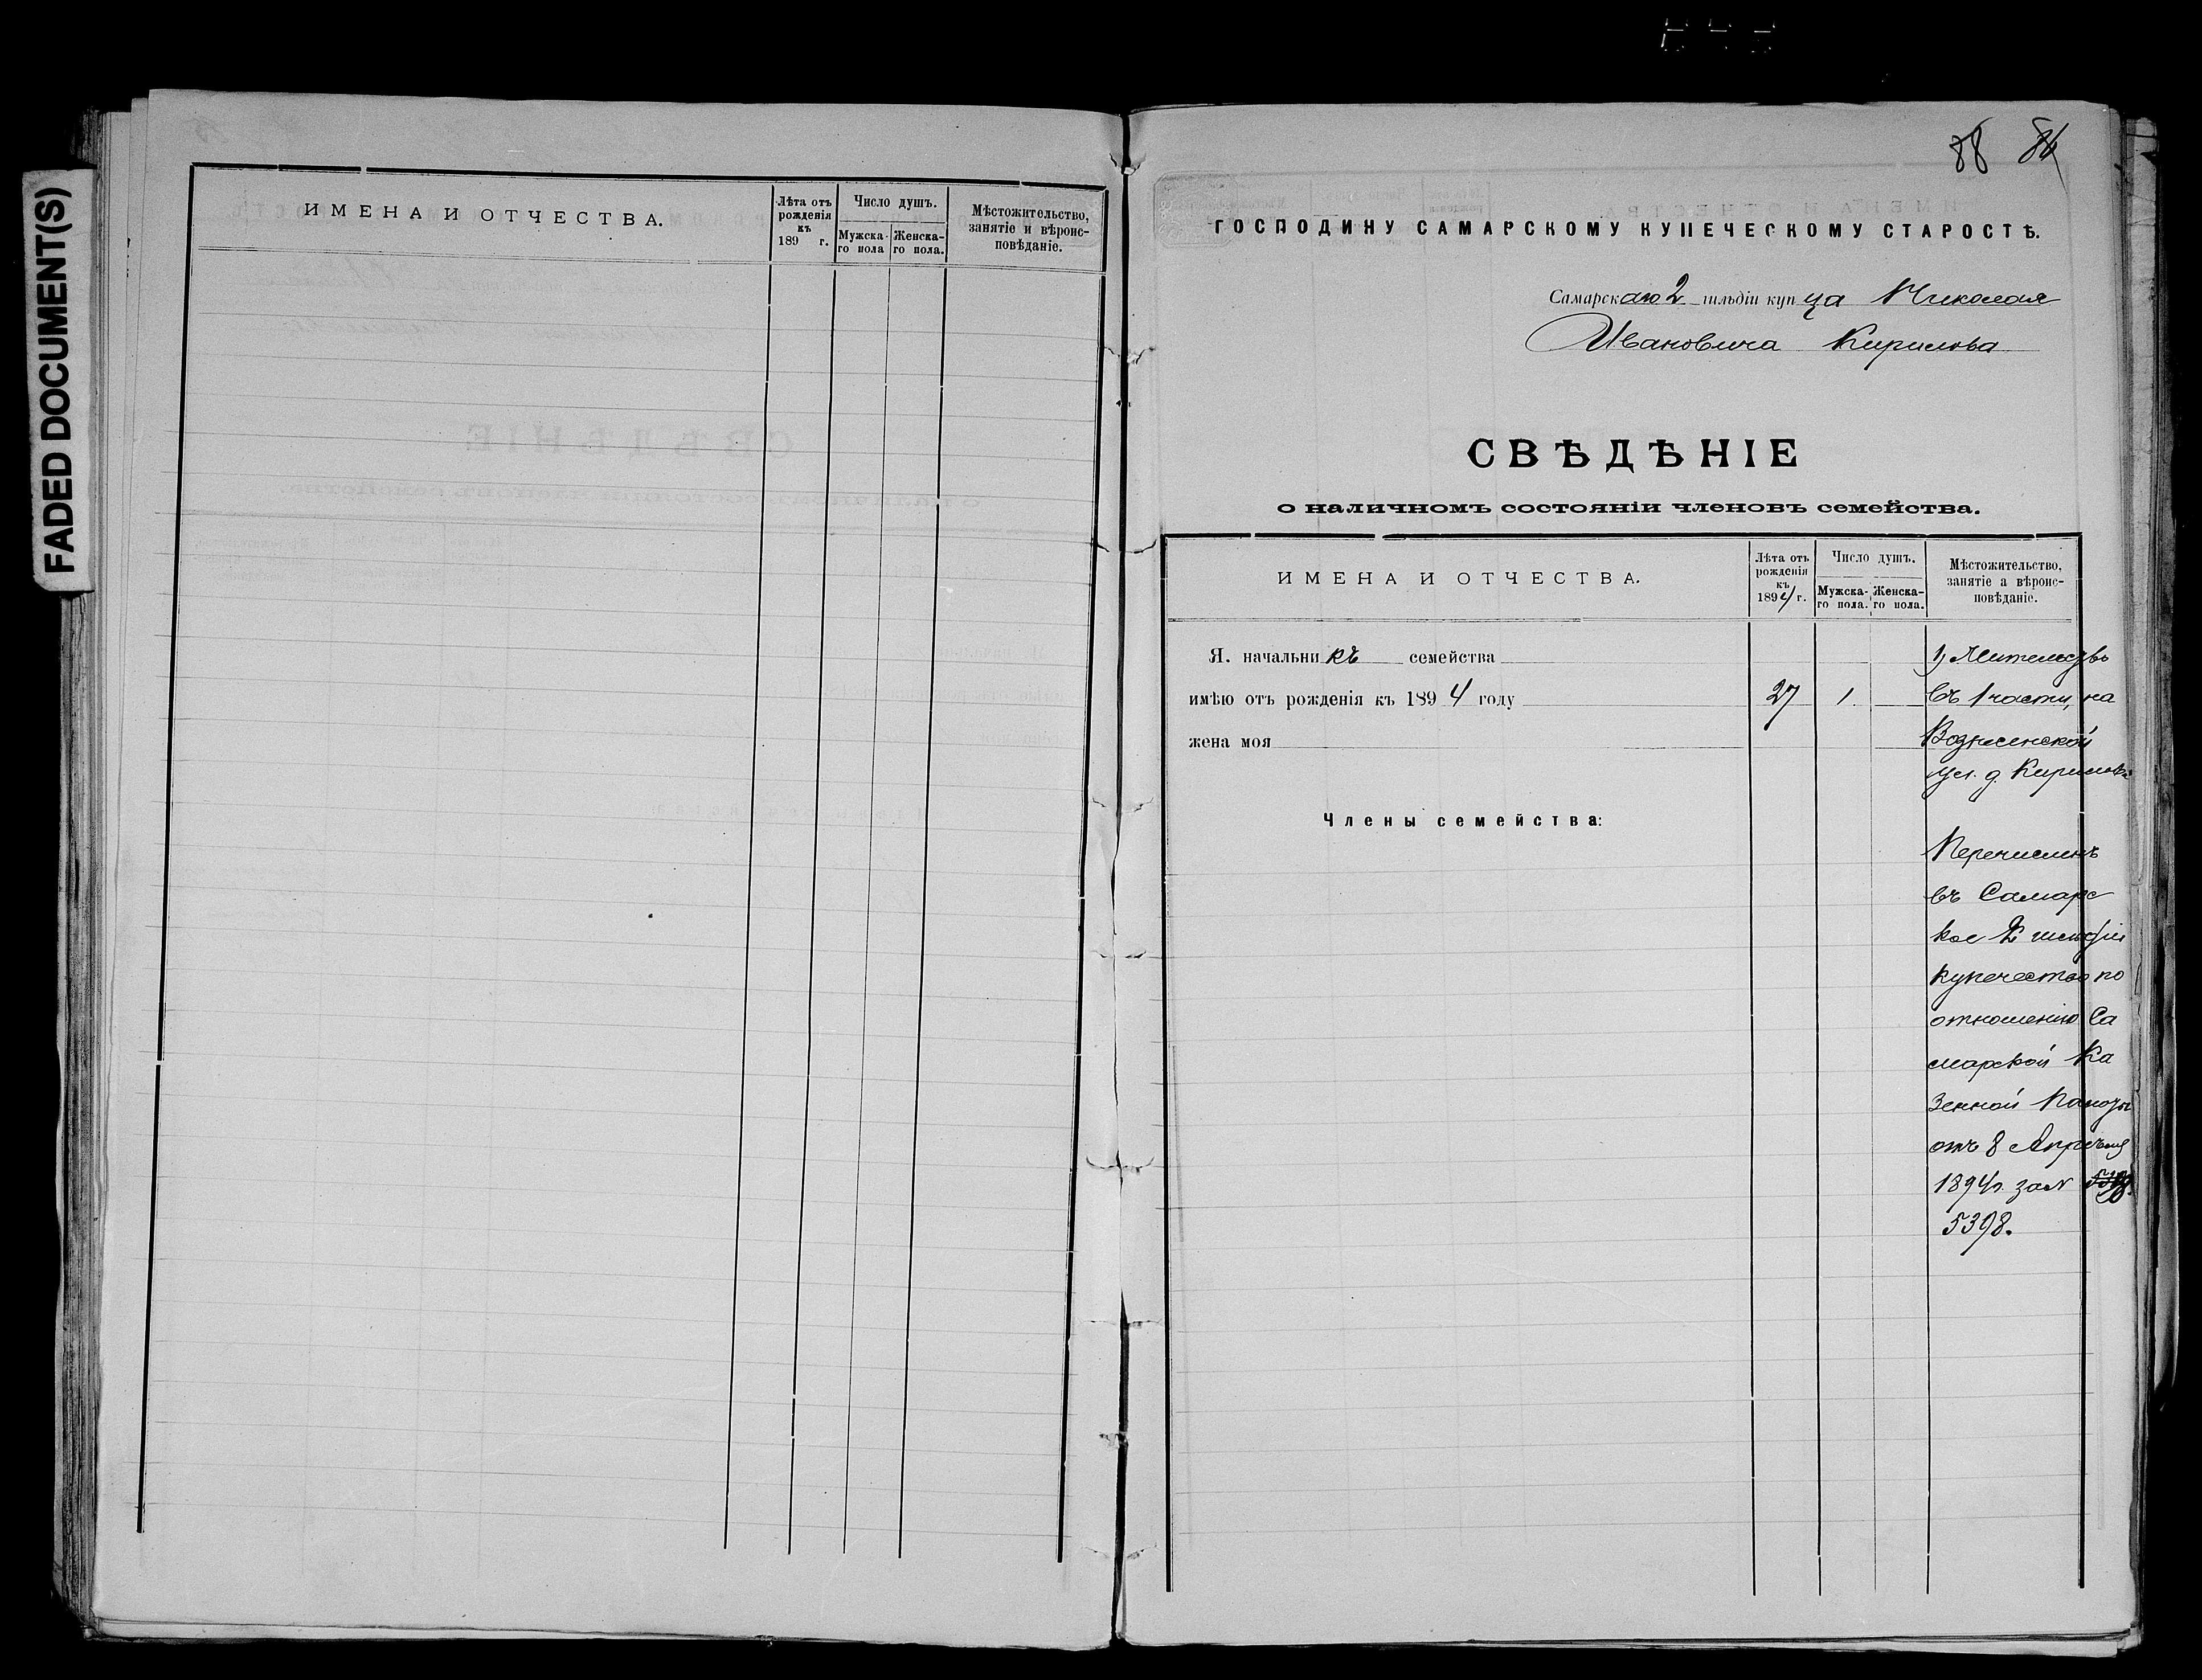 FADED DOCUMENT(S)
ИМЕНА И ОТЧЕСТВА.
Лѣта отъ рожденія къ 189 г.
Число душъ.
Мужска-го пола
Женска-го пола.
Мѣстожительство, занятіе и вѣроис-повѣданіе.
88 84
ГОСПОДИНУ САМАРСКОМУ КУПЕЧЕСКОМУ СТАРОСТѢ.
Самарскаго 2 гильдіи купца Николая
Ивановича Кирилова
СВѢДѢНІЕ
о наличномъ состояніи членовъ семейства.
ИМЕНА И ОТЧЕСТВА.
Лѣта отъ рожденія къ 1894 г.
Число душъ.
Мужска-го пола.
Женска-го пола.
Мѣстожительство, занятіе а вѣроис-повѣданіе.
Я. начальникъ семейства
имѣю отъ рожденія къ 1894 году 27 1.
жена моя
Члены семейства:
1) Жительство
въ 1 части, на
Вознесенской
ул. д. Кирилова
Перечисленъ
въ Самарс
кое 2 гильдіи
купечество по
отношенію Са
марской Ка
зенной Палаты
отъ 8 Апрѣля
1894 г. за N
5398.